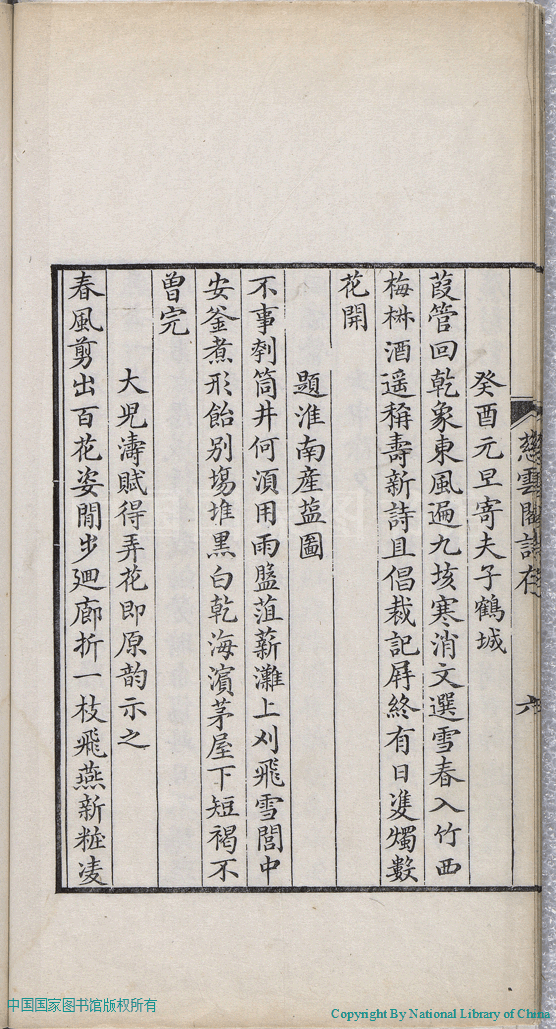 癸酉元旦寄夫子鶴城
葭管回乾象東風遍九垓寒消文選雪春入竹西
梅椕酒遥稱壽新詩且倡裁記屛終有日䨇燭數
花開
題淮南産塩圖
不事刳筒井何湏用雨盬菹薪灘上刈飛雪閭中
安釜煮形飴别塲堆黒白乾海濵茅屋下短褐不
曽完
大児濤賦得弄花即原韵示之
春風剪出百花姿閒步廻廊折一枝飛燕新粧凌
雲閣詩存
六
中国国家图书馆版权所有
Copyright By National Library of China